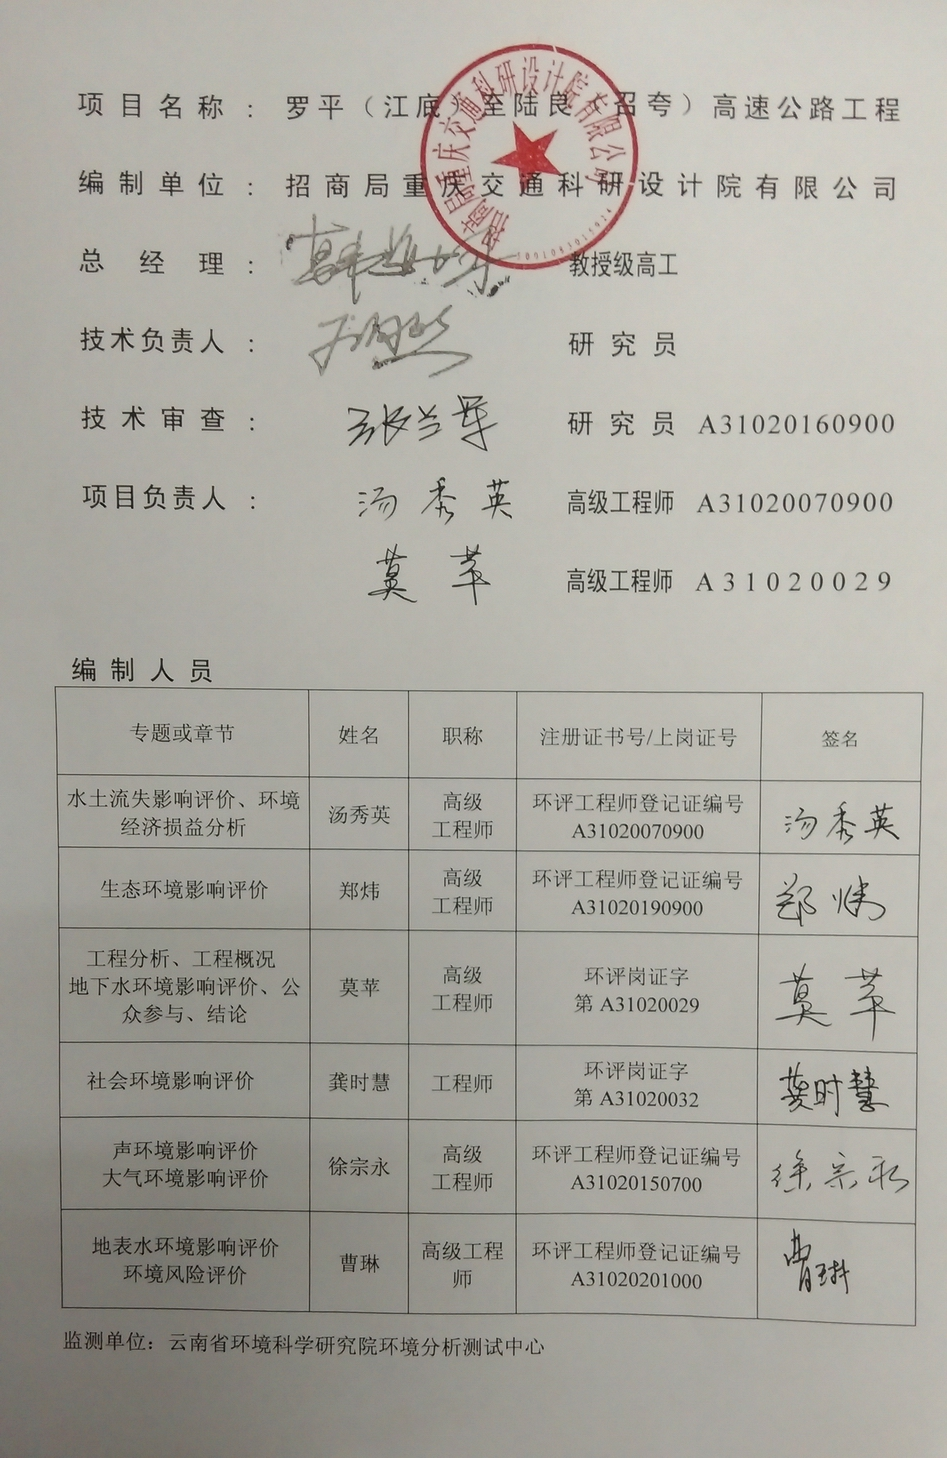 项目名称：罗平（江底）至陆良（召夸）高速公路工程
编制单位：招商局重庆交通科研设计院有限公司
招商局重庆交通科研设计院有限公司
总经理： 教授级高工
技术负责人： 研究员
技术审查：张兰军 研究员 A31020160900
项目负责人：汤秀英 高级工程师 A31020070900
莫苹 高级工程师 A31020029
编制人员
专题或章节 姓名 职称 注册证书号/上岗证号 签名
水土流失影响评价、环境
经济损益分析 汤秀英 高级
工程师 环评工程师登记证编号
A31020070900 汤秀英
生态环境影响评价 郑炜 高级
工程师 环评工程师登记证编号
A31020190900 郑炜
工程分析、工程概况
地下水环境影响评价、公
众参与、结论 莫苹 高级
工程师 环评岗证字
第 A31020029 莫苹
社会环境影响评价 龚时慧 工程师 环评岗证字
第 A31020032 龚时慧
声环境影响评价
大气环境影响评价 徐宗永 高级
工程师 环评工程师登记证编号
A31020150700 徐宗永
地表水环境影响评价
环境风险评价 曹琳 高级工程
师 环评工程师登记证编号
A31020201000 曹琳
监测单位：云南省环境科学研究院环境分析测试中心